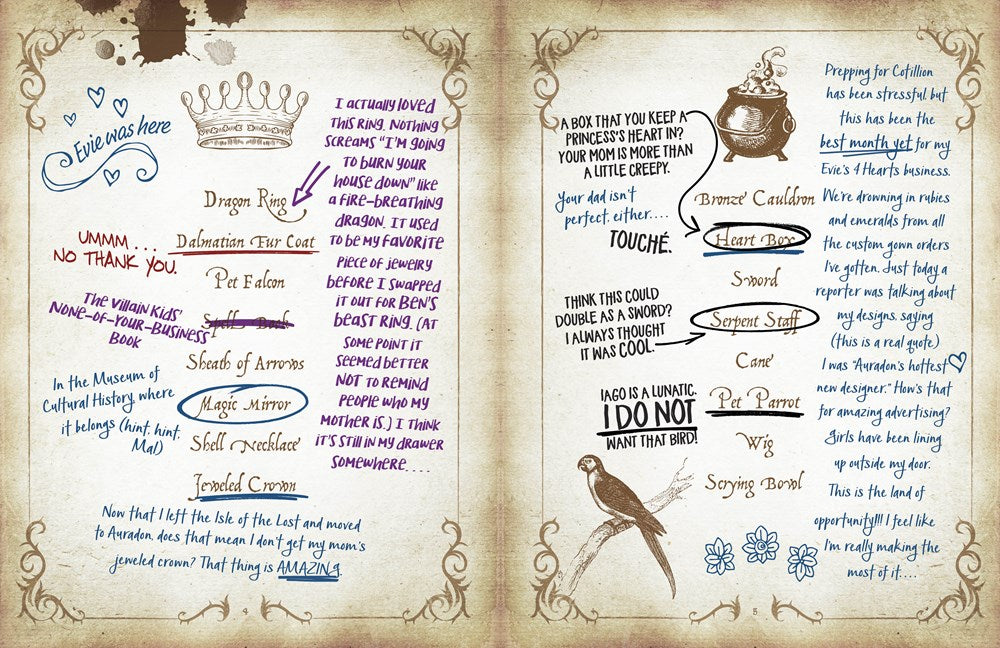 Evie was here
I actually loved
this ring. Nothing
screams "I'm going
to burn your
house down" like
a fire-breathing
dragon. It used
to be my favorite
piece of jewelry
before I swapped
it out for Ben's
beast ring. (At
some point it
seemed better
not to remind
people who my
mother is.) I think
it's still in my drawer
somewhere. . . .
Dragon Ring
Dalmatian Fur Coat
UMMM . . .
NO THANK YOU.
Pet Falcon
Spell Book
The Villain Kids'
None-of-Your-Business
Book
Sheath of Arrows
Magic Mirror
In the Museum of
Cultural History, where
it belongs (hint, hint,
Mal)
Shell Necklace
Jeweled Crown
Now that I left the Isle of the Lost and moved
to Auradon, does that mean I don't get my mom's
jeweled crown? That thing is AMAZING.
4
A BOX THAT YOU KEEP A
PRINCESS'S HEART IN?
YOUR MOM IS MORE THAN
A LITTLE CREEPY.
Your dad isn't
perfect, either. . . .
TOUCHÉ.
Bronze Cauldron
Heart Box
Sword
THINK THIS COULD
DOUBLE AS A SWORD?
I ALWAYS THOUGHT
IT WAS COOL.
Serpent Staff
Cane
IAGO IS A LUNATIC.
I DO NOT
WANT THAT BIRD!
Pet Parrot
Wig
Scrying Bowl
Prepping for Cotillion
has been stressful, but
this has been the
best month yet for my
Evie's 4 Hearts business.
We're drowning in rubies
and emeralds from all
the custom gown orders
I've gotten. Just today a
reporter was talking about
my designs, saying
(this is a real quote)
I was "Auradon's hottest
new designer." How's that
for amazing advertising?
Girls have been lining
up outside my door.
This is the land of
opportunity!!! I feel like
I'm really making the
most of it. . . .
5